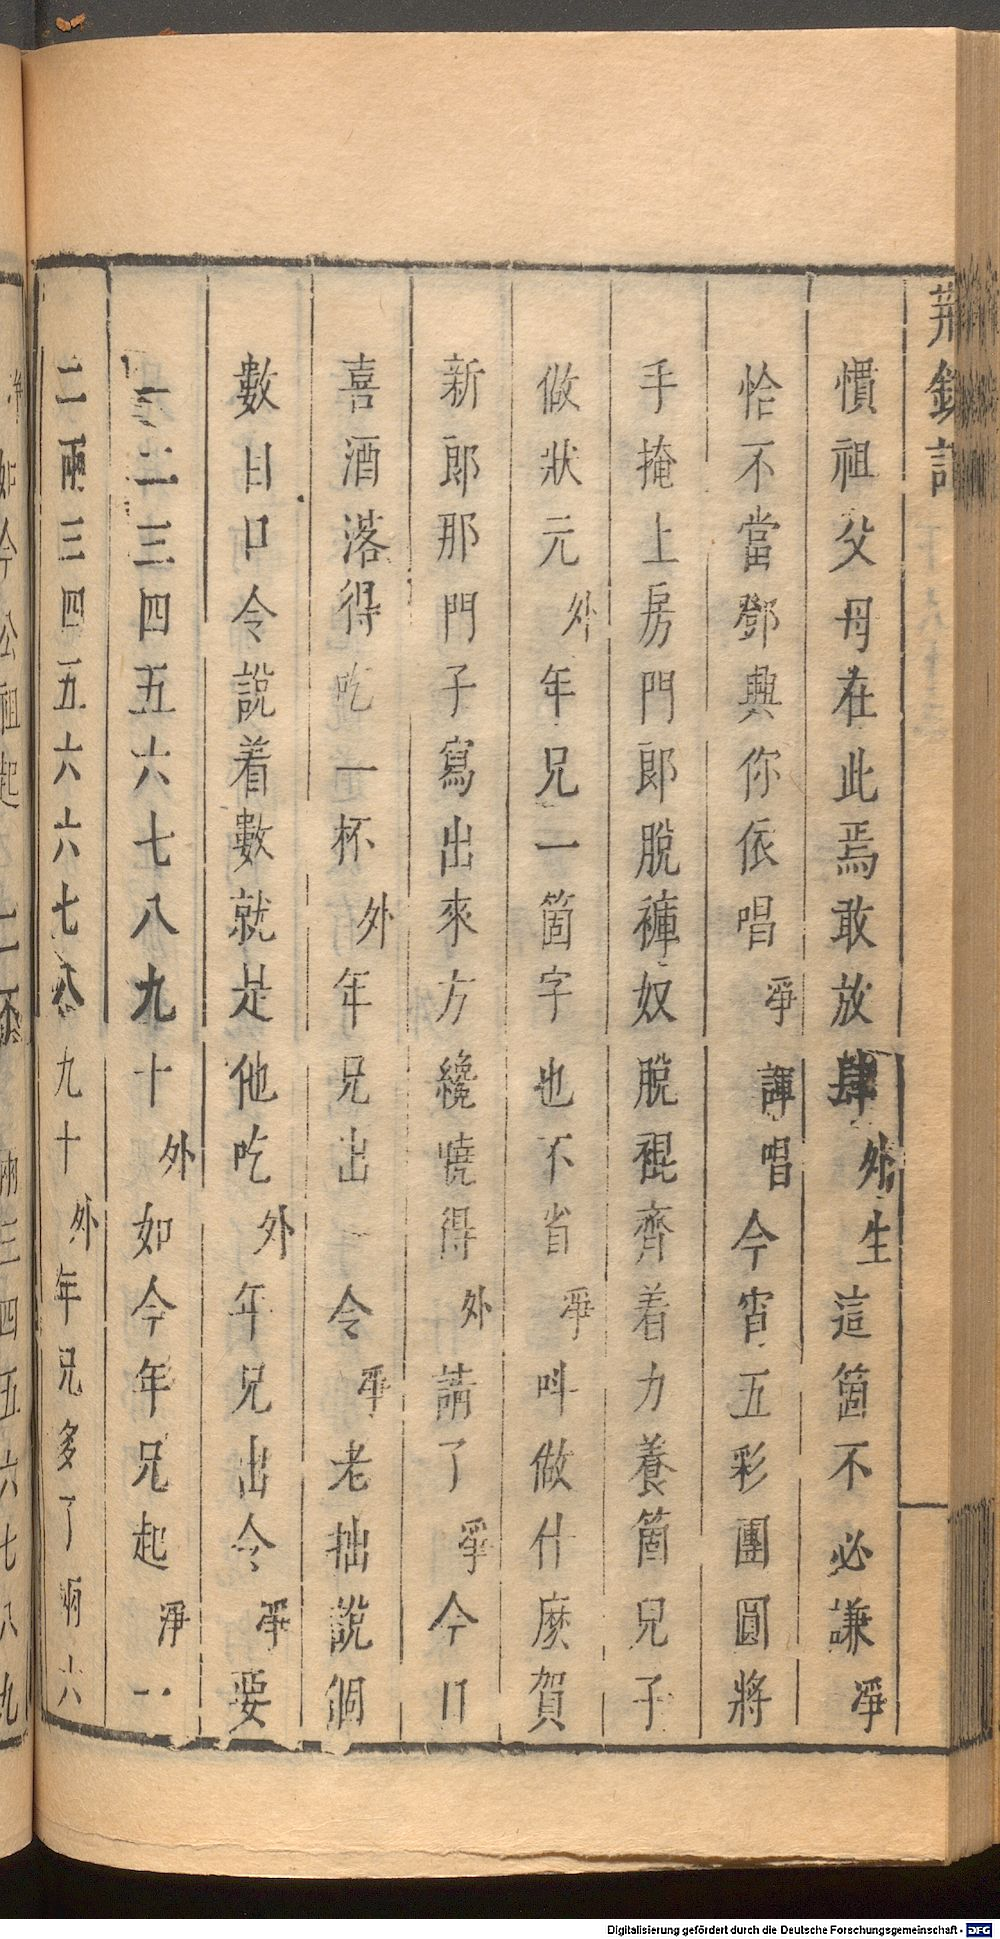 荊釵記
慣祖父母在此焉敢放肆外生這箇不必謙淨
恰不當鄧興你依唱淨諢唱今宵五彩團圓將
手掩上房門郎脫褲奴脫裩齊着力養箇兒子
做狀元外年兄一箇字也不省淨呌做什麽賀
新郎那門子寫出來方纔曉得外請了淨今日
喜酒落得吃一杯外年兄出一令淨老拙說個
數目口令說着數就是他吃外年兄出令淨要
一二三四五六七八九十外如今年兄起淨一
二兩三四五六六七八九十外年兄多了兩六
Digitalisierung gefördert durch die Deutsche Forschungsgemeinschaft - DFG